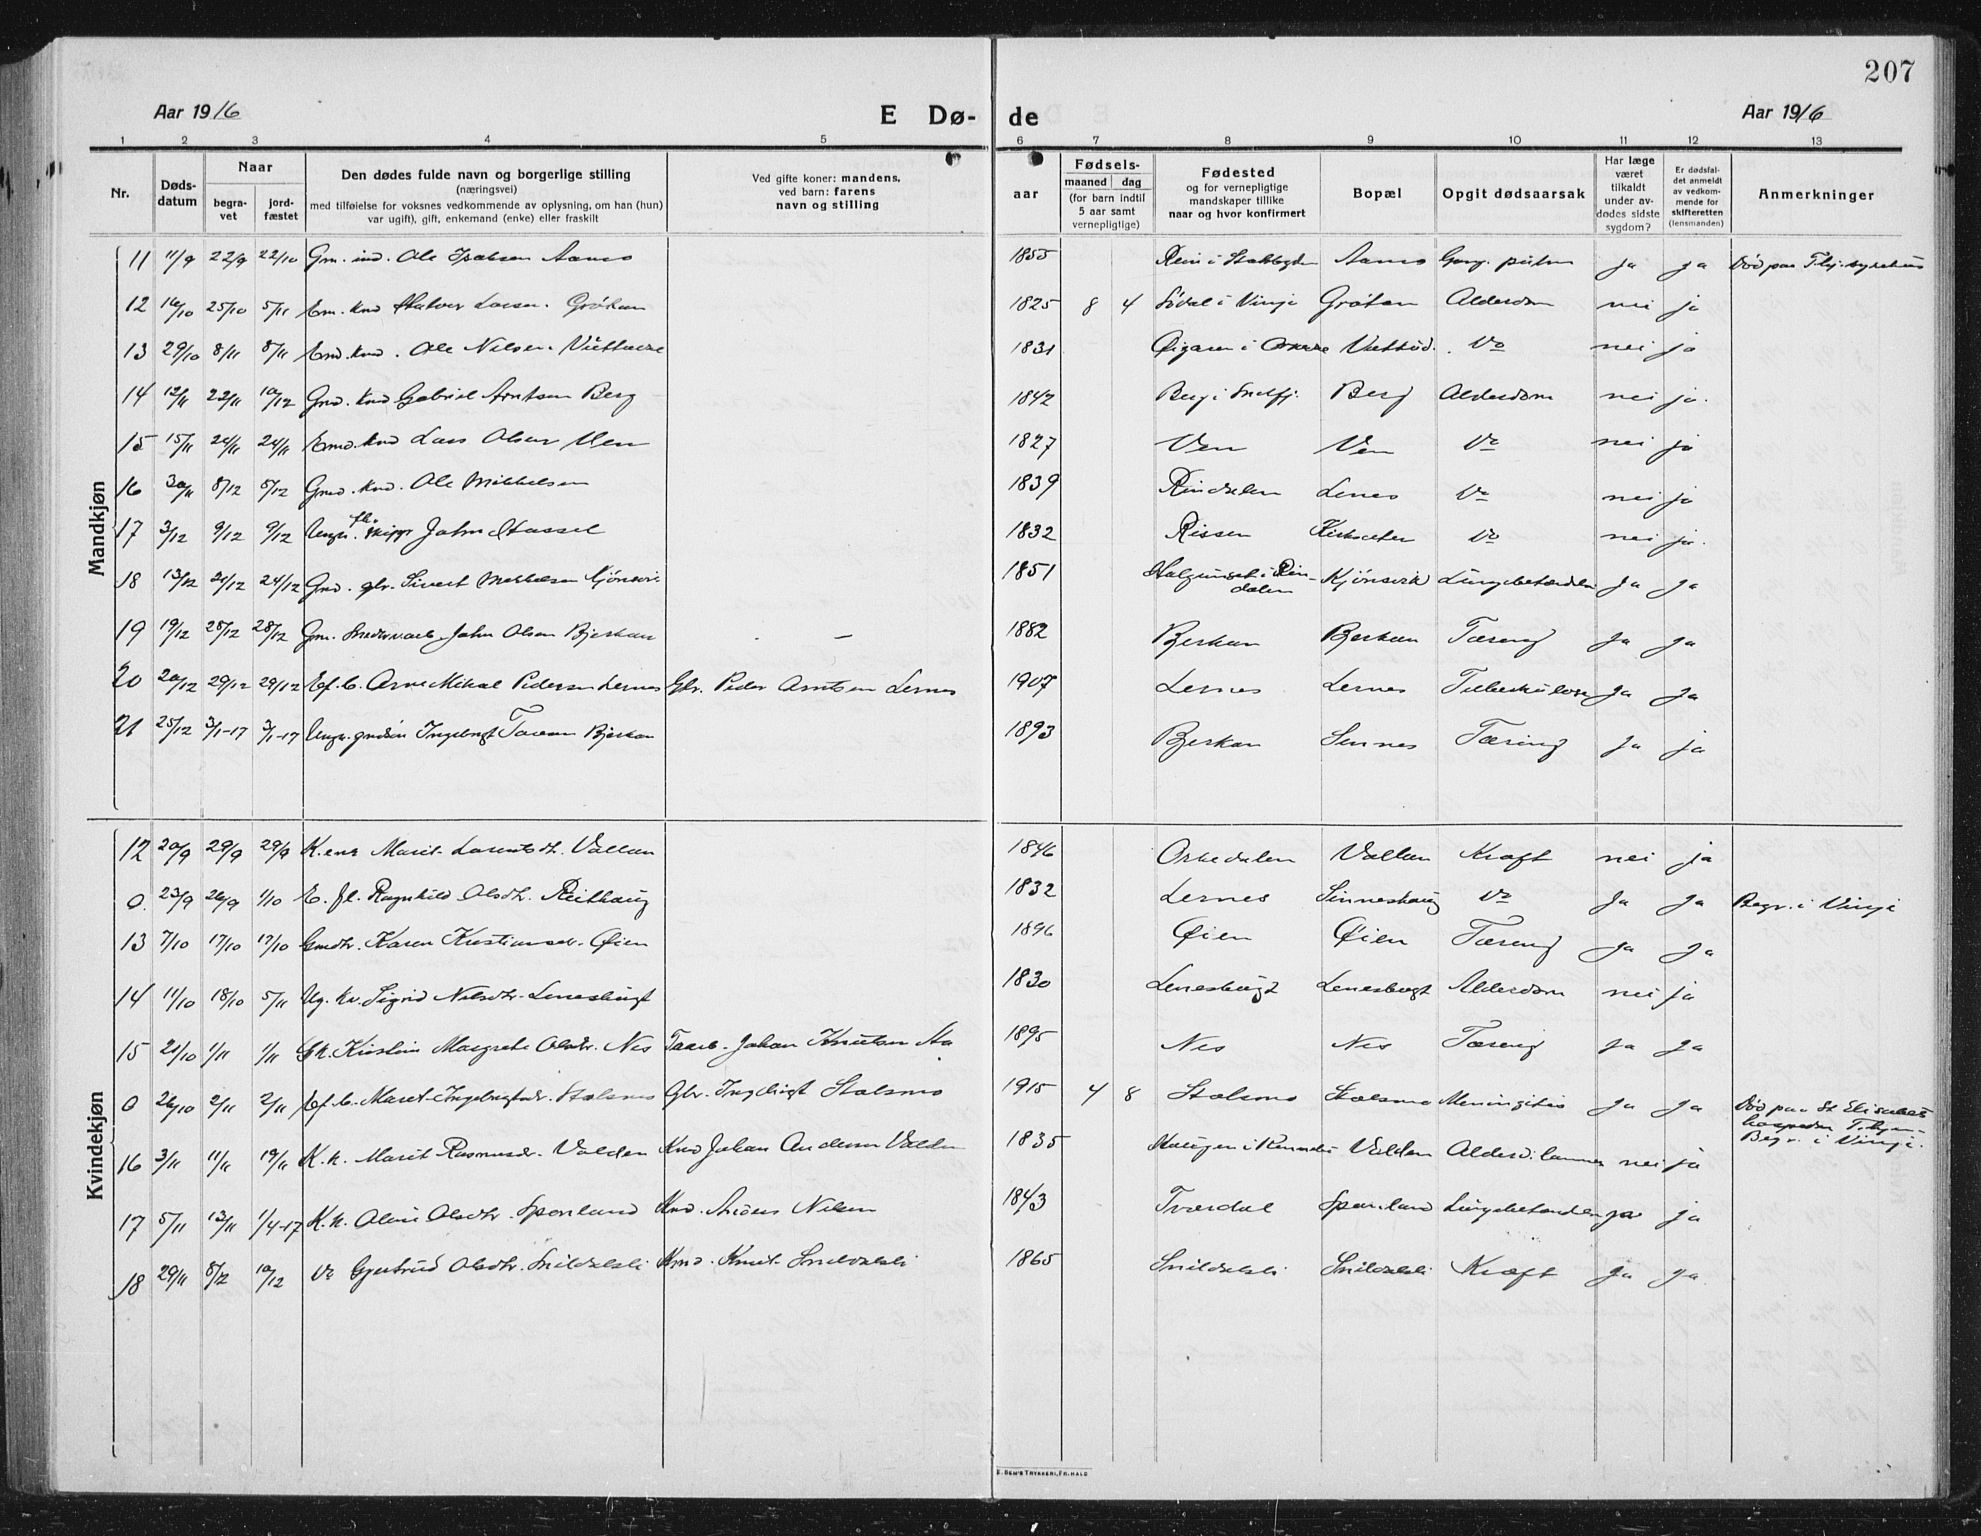 207
Aar 1916 E Dø- de Aar 1916
1 2 3 4 5 6 7 8 9 10 11 12 13
Nr.
Døds-
datum
Naar
begra-
vet
jord-
fæstet
Den dødes fulde navn og borgerlige stilling
(næringsvei)
med tilføielse for voksnes vedkommende av oplysning, om han (hun)
var ugift), gift, enkemand (enke) eller fraskilt
Ved gifte koner: mandens,
ved barn: farens
navn og stilling
aar
Fødsels-
maaned dag
(for barn indtil
5 aar samt
vernepligtige)
Fødested
og for vernepligtige
mandskaper tillike
naar og hvor konfirmert
Bopæl
Opgit dødsaarsak
Har læge
været
tilkaldt
under av-
dødes sidste
sygdom?
Er dødsfal-
det anmeldt
av vedkom-
mende for
skifteretten
(lensmanden)
Anmerkninger
Mandkjøn
11 11/9 22/9 22/10 Gm. ind. Ole Aamo 1855 Rein i Aamo ja ja Død paa
12 16/10 25/10 5/11 Em. Kmd Larsen Grötan 1825 8 4 i Vinje Grötan Alderdom nei ja
13 29/10 8/11 8/11 Emd. Kmd. Ole Nilsen 1831 Øigaren i Do nei ja
14 12/11 22/11 10/12 Gmd. Kmd Gabriel Arntsen Berg 1842 Berg i Snilfj. Berg Alderdom nei ja.
15 15/11 24/11 24/11 Emd. Kmd Lars Olsen Ven 1827 Ven Ven Do nei ja
16 30/11 8/12 8/12 Gmd. Kmd. Ole Mikkelsen 1839 Rindalen Lenes Do nei ja
17 3/12 9/12 9/12 Ungk. fh. skippr John Hassel 1832 Rissen Kirksæter Do nei ja.
18 13/12 21/12 24/12 Gmd. gbr. Sivert Mikkelsen Kjönsvik 1851 i Rin-
dalen Kjönsvik Lungebetændelse Ja Ja
19 19/12 28/12 28/12 Gm. John Olsen Bjerkan — 1882 Bjerkan Bjerkan Tæring Ja Ja
20 20/12 29/12 29/12 Ef. b. Arne Mikal Pedersen Lernes Gbr. Peder Arntsen Lernes 1907 Lernes Lernes Tuberkulose Ja Ja
21 25/12 3/1-17 3/1-17 Ungk. Ingebrigt Bjerkan 1893 Bjerkan Sinnes Tæring Ja ja
Kvindekjøn
12 20/9 29/9 29/9 K. enk Marit Larentsdtr. Vallan 1846 Orkedalen Vallan Kræft nei ja
0. 23/9 26/9 1/10 E. fl. Ragnhild Olsdtr. Reithaug 1832 Lernes Sinneshaug Do Ja Ja Begr. i Vinje
13 7/10 17/10 17/10 Gmdtr. Karen Kristiansdr. Øien 1896 Øien Øien Tæring Ja Ja
14 11/10 18/10 5/11 Ug. kv. Sigrid Nilsdtr. Lenesbugt 1830 Lenesbugt Lenesbugt Alderdom nei ja
15 21/10 1/11 1/11 Kirstin Margrete Olsdtr. Nes Johan Knutsen Aa 1895 Nes Nes Tæring Ja Ja
0 26/10 2/11 2/11 Ef. b. Maret Ingebrigtsdr. Stolsmo Gbr. Ingebrigt Stolsmo 1915 4 8 Stolsmo Stolsmo Meningitis Ja Ja Død paa St Elisabeth
hospital
Begr. i Vinje.
16 3/11 11/11 19/11 K. k. Marit Rasmusdr. Valden Kmd Johan Andersen Valden 1835 Haugen i Valden nei ja
17 5/11 13/11 1/4-17 K. k. Olsdtr. Sponland Kmd. Anders Nilsen 1843 Tverdal Sponland Lungebetændelse ja ja
18 29/11 8/12 10/12 Do Gjertrud Olsdtr. Snildalsli Kmd. Knut Snildalsli 1865 Snildalsli Snildalsli Kræft Ja Ja
E. SEM'S TRYKKERI, FR. HALD